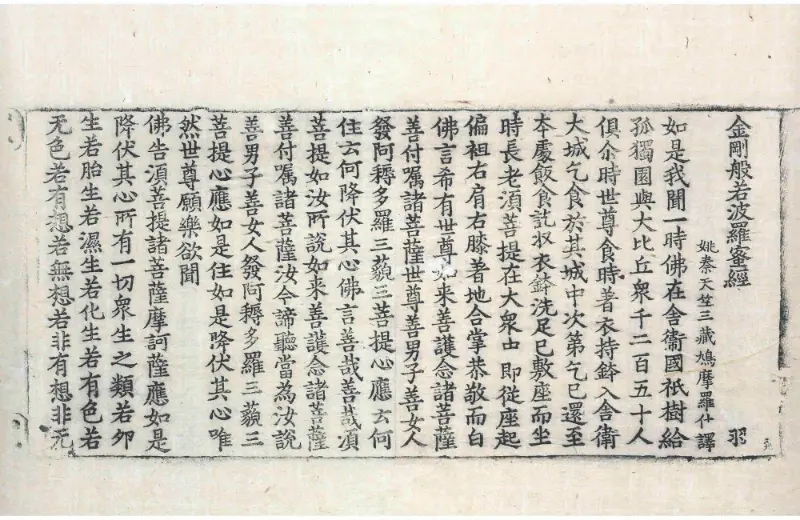 金剛般若波羅蜜經 羽
姚秦天竺三藏鳩摩羅什譯
如是我聞一時佛在舍衞國祇樹給
孤獨園與大比丘衆千二百五十人
俱尒時世尊食時著衣持鉢入舍衛
大城乞食於其城中次第乞已還至
本處飯食訖収衣鉢洗足已敷座而坐
時長老湏菩提在大衆中即從座起
偏袒右肩右膝著地合掌恭敬而白
佛言希有世尊如来善護念諸菩薩
善付嘱諸菩薩世尊善男子善女人
發阿耨多羅三藐三菩提心應云何
住云何降伏其心佛言善哉善哉湏
菩提如汝所說如来善護念諸菩薩
善付嘱諸菩薩汝今諦聽當為汝說
善男子善女人發阿耨多羅三藐三
菩提心應如是住如是降伏其心唯
然世尊願樂欲聞
佛告湏菩提諸菩薩摩訶薩應如是
降伏其心所有一切衆生之類若卵
生若胎生若濕生若化生若有色若
无色若有想若無想若非有想非无